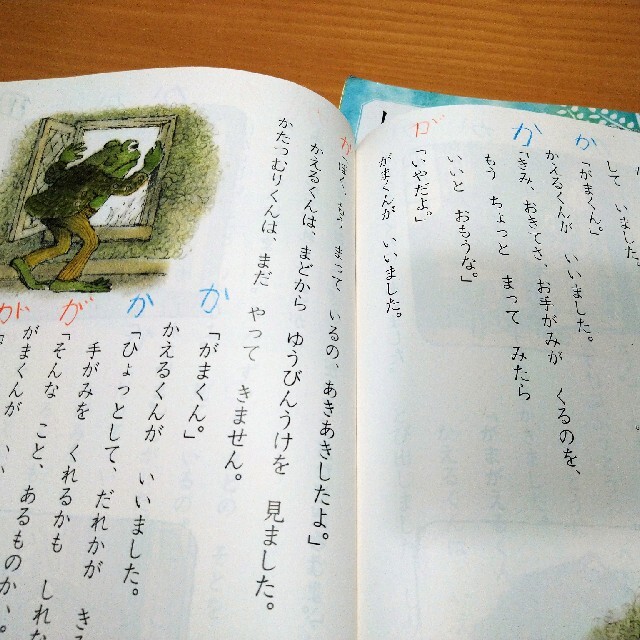 して いました。
か
「がまくん。」
かえるくんが いいました。
か
「きみ、おきてさ、お手がみが くるのを、
もう ちょっと まって みたら
いいと おもうな。」
が
「いやだよ。」
がまくんが いいました。
が
まって いるの、あきあきしたよ。」
かえるくんは、まどから ゆうびんうけを 見ました。
かたつむりくんは、まだ やって きません。
か
「がまくん。」
かえるくんが いいました。
か
「ひょっとして、だれかが
手がみを くれるかも しれな
が
「そんな こと、あるものか。
が
がまくんが